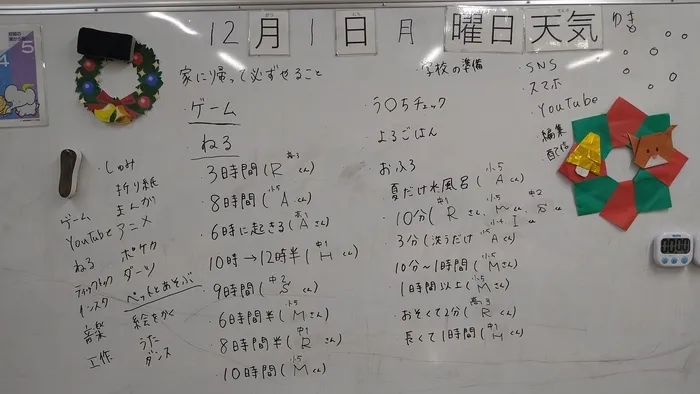 12月1日月曜日天気 ゆき
家に帰って必ずやること
ゲーム
ねる
3時間(R くん) 高3
8時間(A くん) 小5
6時に起きる(Aさん)
10時→12時半(H くん) 中1
9時間(S くん) 中2
6時間半(Mさん) 小5
8時間半(Rさん) 中1
10時間(M くん) 小5
・しゅみ
折り紙
ゲーム まんが
YouTube アニメ
ねる ポケカ
ティックトック ダーツ
インスタ ペットとあそぶ
音楽 絵をかく
工作 うた
ダンス
・学校の準備
う〇ちチェック
よるごはん
おふろ
夏だけ水風呂(A くん) 小5
10分(Rさん、 中1
3分(洗うだけ A くん) 小5
10分〜1時間(Mさん) 小5
1時間以上(Mさん) 小5
おそくて2分(R くん) 高3
長くて1時間(H くん) 中1
・SNS
・スマホ
YouTube
編集
配信
4
5